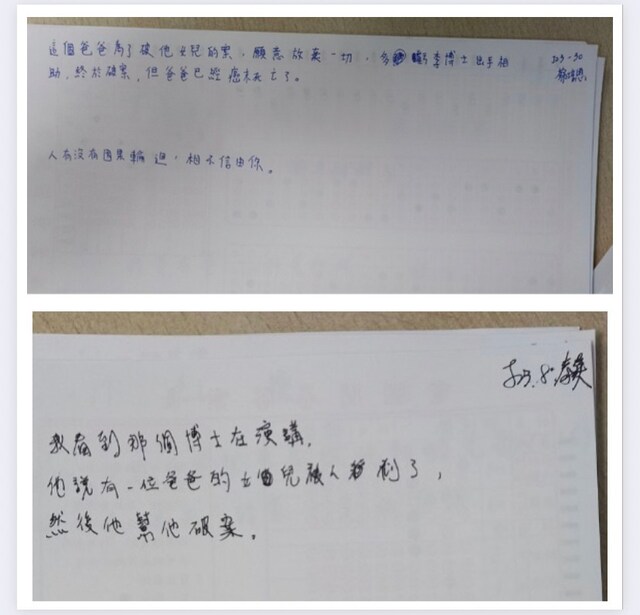 這個爸爸為了破他女兒的案，願意放棄一切，多虧李博士出手相
助，終於破案，但爸爸已經癌末死亡了。
人有沒有因果輪迴，相不信由你。
我看到那個博士在演講，
他說有一位爸爸的女兒被人殺了，
然後他幫他破案。